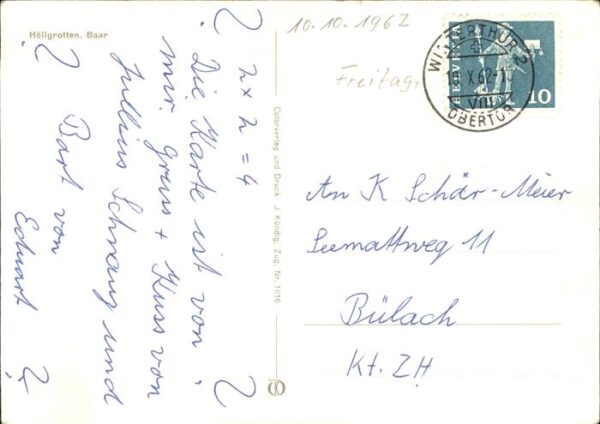 Höllgrotten, Baar
10.10-1962
Freitag
WINTERTHUR 2
10.X.62-1
VIII
OBERTOR
HELVETIA
10
2 x 2 = 4
Die Karte ist von
mir. Gruss + Kuss von
Jullius Schranz und
Bart von
Eduart
Colorverlag und Druck J. Kündig, Zug. Nr. 1016
An K Schär-Meier
Seemattweg 11
Bülach
Kt. ZH